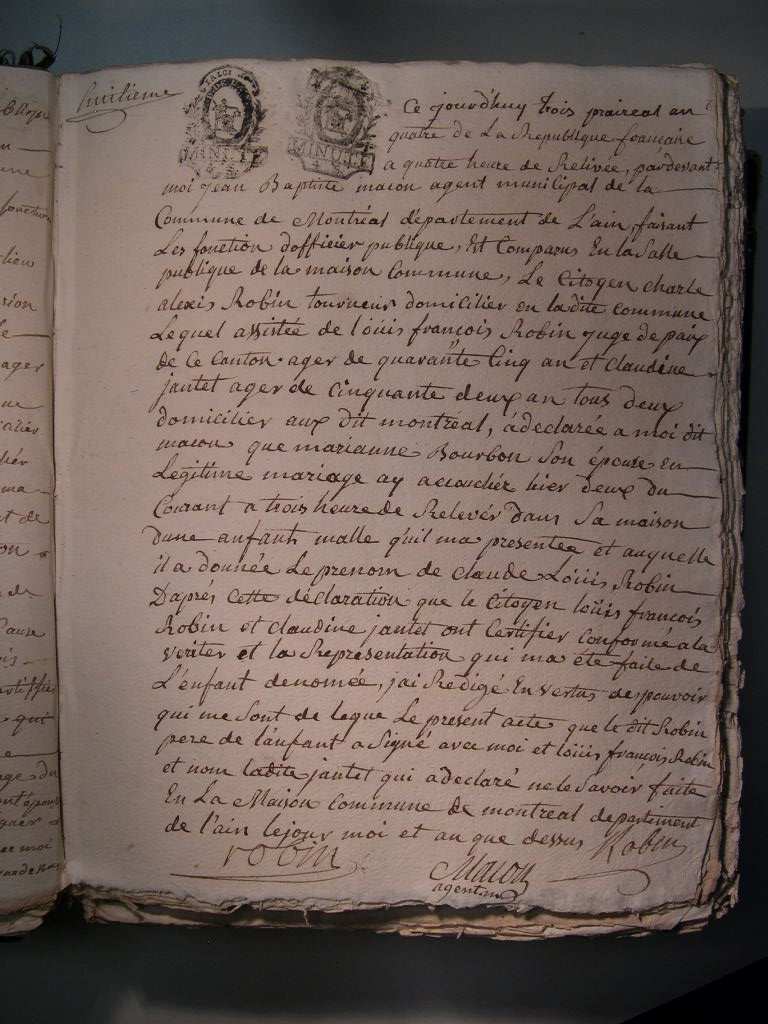 huitieme
MINUTE MINUTE
Ce jourdhuy trois praireal an
quatre de La Republique francaine
a quatre heure de Relivée, pardevant
moi jean Baptiste macon agent municipal de la
Commune de Montréal département de L'ain, faisant
Les fonction dofficier publique, Est Comparus En la Salle
publique de la maison Commune, Le Citoyen charle
alexis Robin tourneur domicilier en la dite commune
Lequel assistée de loüis françois Robin juge de paix
de Ce Canton ager de quarante Cinq an et Claudine
jantet ager de Cinquante deux an tous deux
domicilier aux dit montréal, à declarée a moi dit
macon que marianne Bourbon Son épouse en
Legitime mariage ay accouchéz hier deux du
Courant a trois heure de Relevér dans Sa maison
dune anfants malle quil ma presentee et auquelle
il a donnée Le prenom de claude Loüis Robin
Daprés Cette déclaration que le Citoyen loüis françois
Robin et Claudine jantet ont Certifier Conforme a la
veriter et la Représentation qui ma été faite de
L'enfant denomée, jai Redigé En vertus de pouvoir
qui me Sont de legue Le present acte que le dit Robin
pere de l'enfant a Signé avec moi et loüis françois Robin
et nom ladite jantet qui a declaré ne le Savoir faite
En La Maison Commune de montreal departiment
de l'ain le jour moi et an que dessus Robin
robin
Macon
agent m